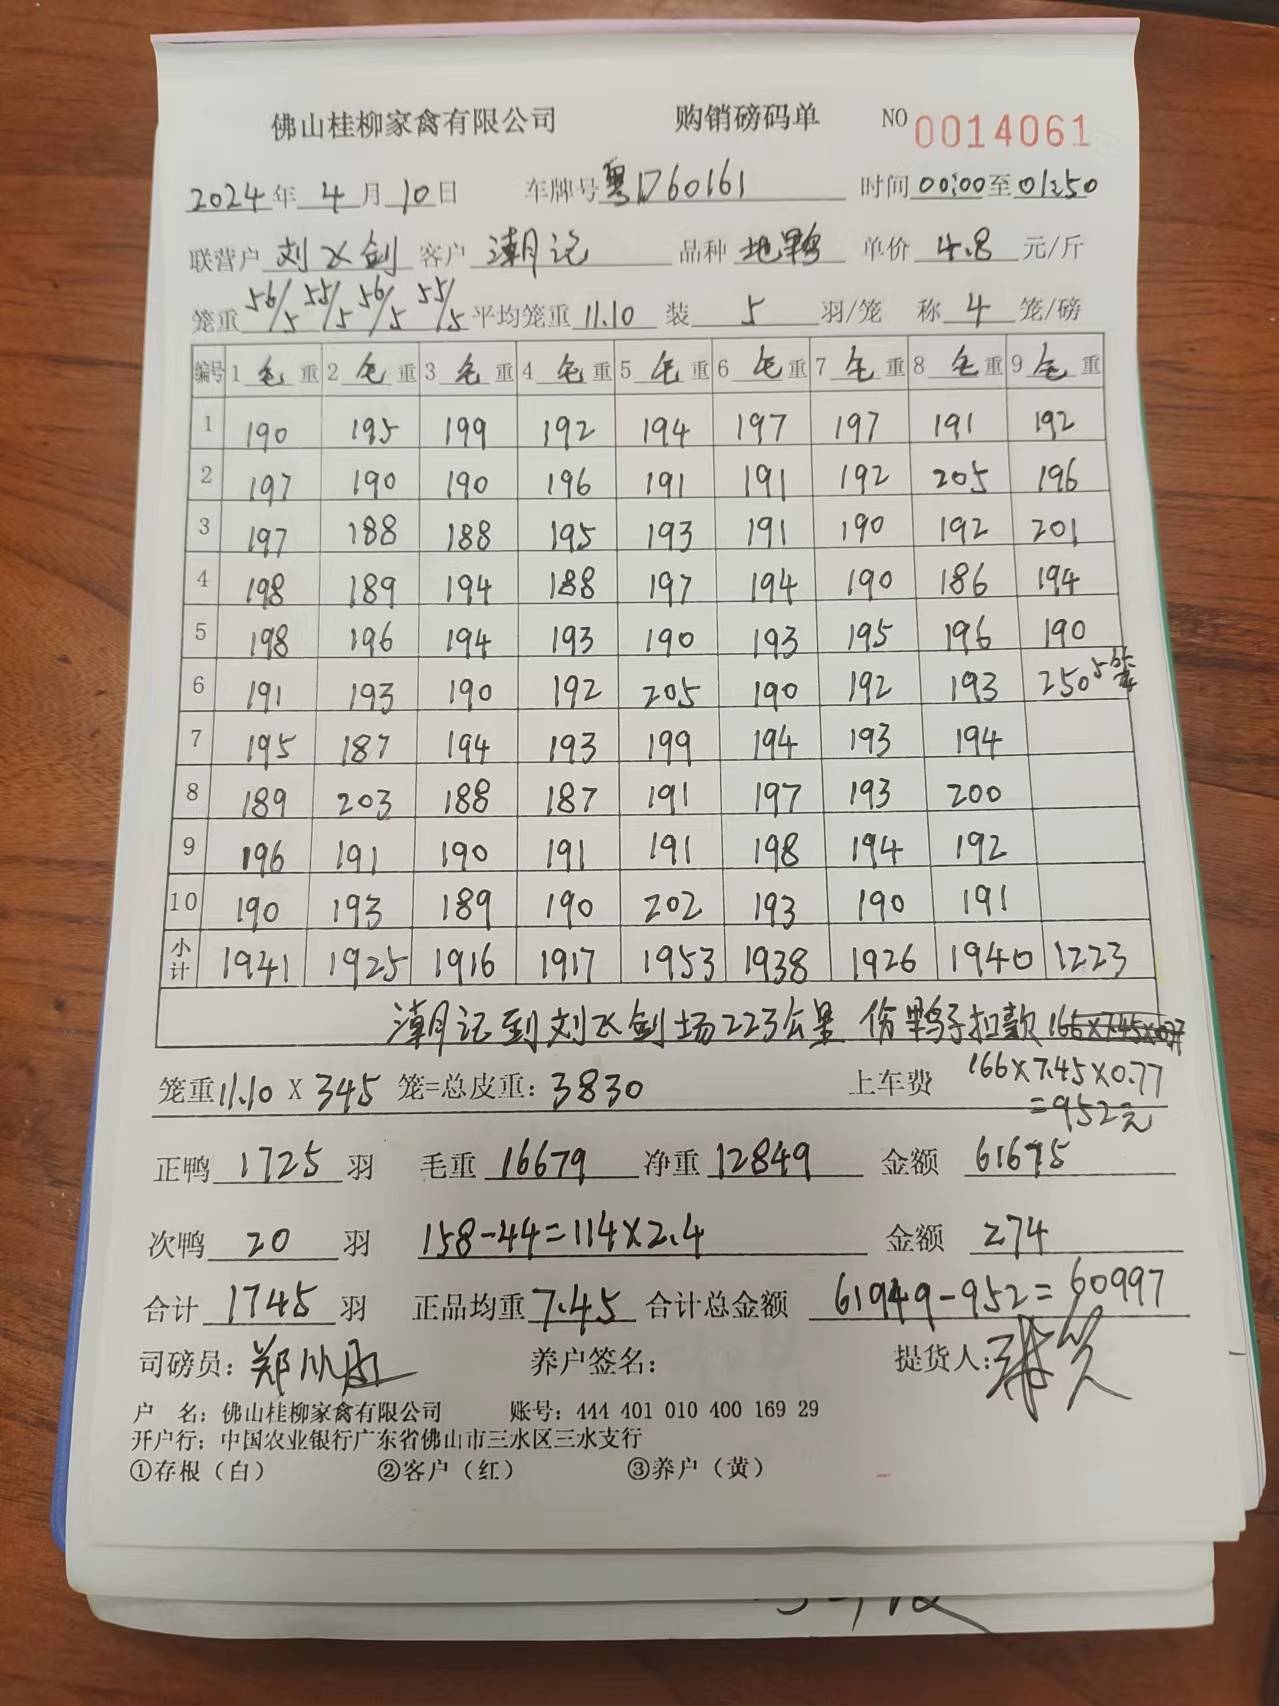 佛山桂柳家禽有限公司 购销磅码单 NO 0014061
2024年 4月 10日 车牌号 粤1760161 时间 00:00 至 01:50
联营户 刘飞剑 客户 潮记 品种 地鸭 单价 4.8 元/斤
笼重 56/5 55/5 56/5 55/5 平均笼重 11.10 装 5 羽/笼 称 4 笼/磅
编号 1 毛 重 2 毛 重 3 毛 重 4 毛 重 5 毛 重 6 毛 重 7 毛 重 8 毛 重 9 毛 重
1 190 195 199 192 194 197 197 191 192
2 197 190 190 196 191 191 192 205 196
3 197 188 188 195 193 191 190 192 201
4 198 189 194 188 197 194 190 186 194
5 198 196 194 193 190 193 195 196 190
6 191 193 190 192 205 190 192 193 250 5笼
7 195 187 194 193 199 194 193 194
8 189 203 188 187 191 197 193 200
9 196 191 190 191 191 198 194 192
10 190 193 189 190 202 193 190 191
小计 1941 1925 1916 1917 1953 1938 1926 1940 1223
潮记到刘飞剑场223公里 伤鸭子扣款 166×7.45×0.77
笼重 11.10 X 345 笼=总皮重: 3830 上车费 166×7.45×0.77
=952元
正鸭 1725 羽 毛重 16679 净重 12849 金额 61675
次鸭 20 羽 158-44=114×2.4 金额 274
合计 1745 羽 正品均重 7.45 合计总金额 61949-952=60997
司磅员: 郑 养户签名: 提货人:
户 名: 佛山桂柳家禽有限公司 账号: 444 401 010 400 169 29
开户行: 中国农业银行广东省佛山市三水区三水支行
①存根（白） ②客户（红） ③养户（黄）